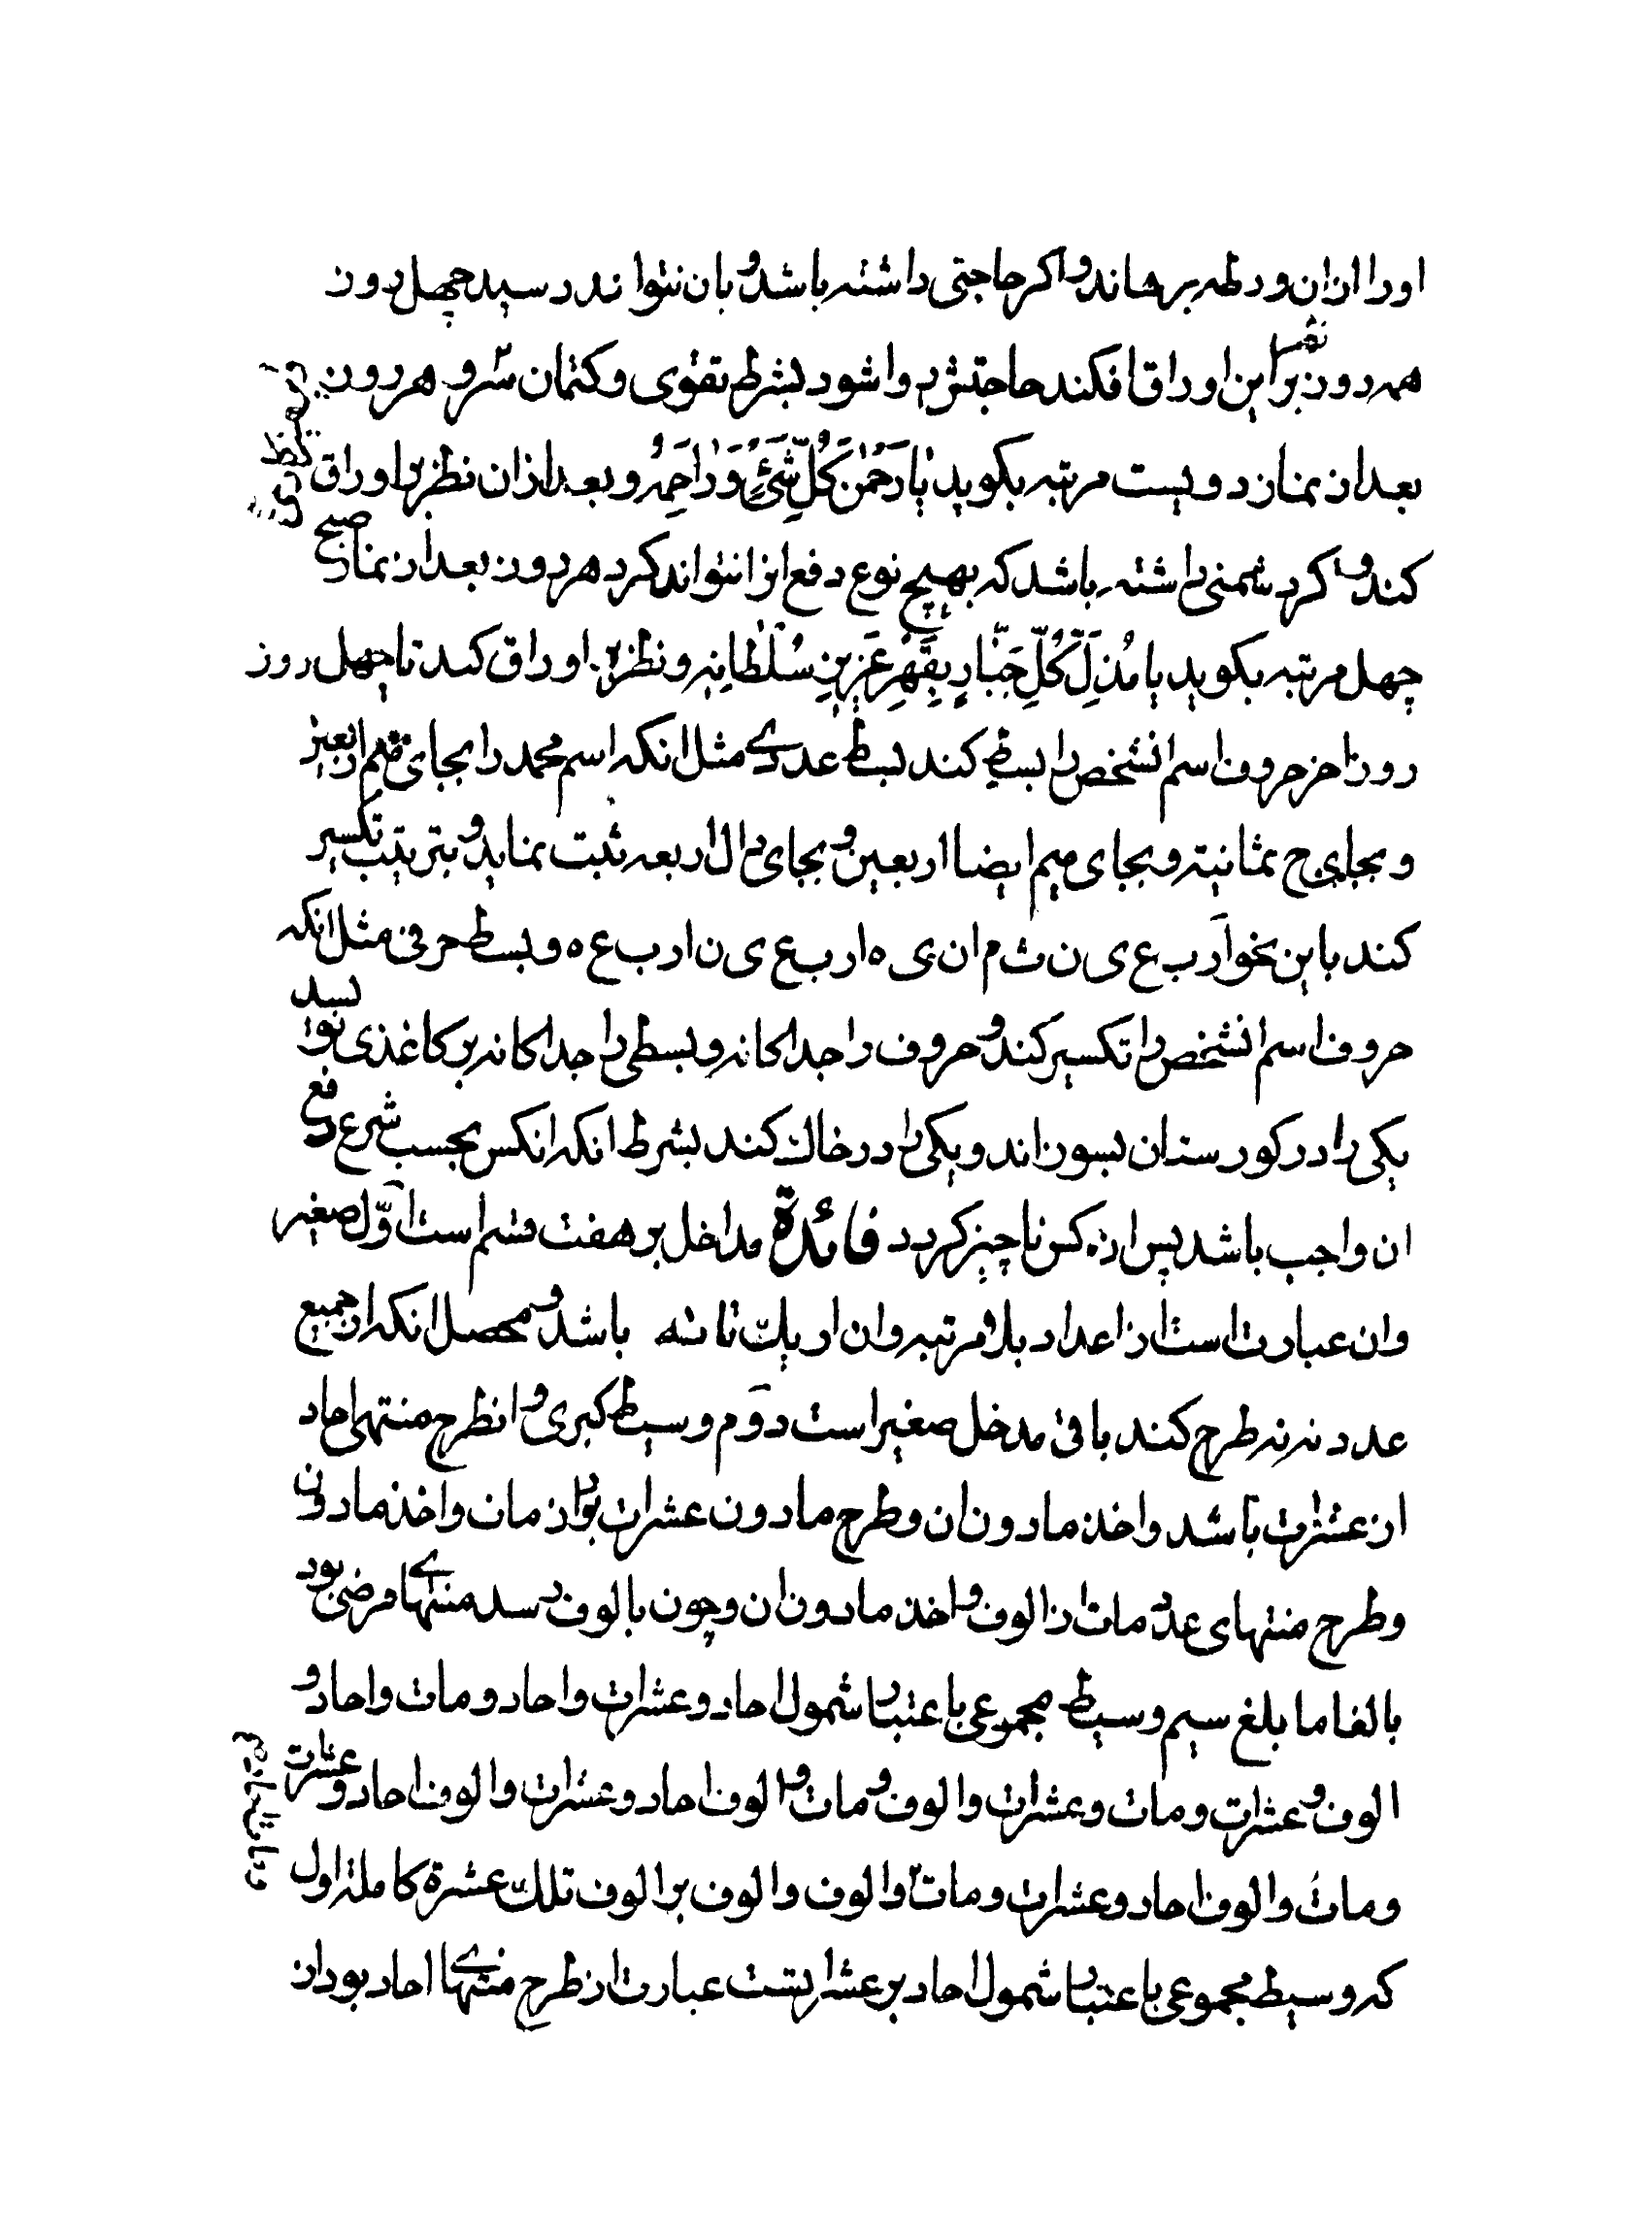 اورا ازان ورطه برهاند و اکر حاجتی داشته باشد و بان نتواند رسید چهل روز
همه روز نظر بر این اوراق افکند حاجتش روا شود بشرط تقوی و کتمان سرّ و هر روز
بعد از نماز دویست مرتبه بکوید یٰا رَحْمٰنَ کُلِّ شَیْءٍ وَ رٰاحِمَهُ و بعد ازان نظر بر اوراق
کند و اکر دشمنی داشته باشد که بهیچ نوع دفع انرا نتواند کرد هر روز بعد از نماز صبح
چهل مرتبه بکوید یا مُذِلَّ کُلِّ جَبّٰارٍ بِقَهْرِ عَزِیزِ سُلْطٰانِهِ و نظر برین اوراق کند تا چهل روز
روز اخر حروف اسم انشخص را بسط کند بسط عددی مثل انکه اسم محمد را بجای میم اربعین
و بجای ح ثمانیة و بجای میم ایضا اربعین و بجای دال اربعه ثبت نماید و بترتیب تکسیر
کند باین نحو ا ر ب ع ی ن ث م ا ن ی ه ا ر ب ع ی ن ا ر ب ع ه و بسط حرفی مثل انکه
حروف اسم انشخص را تکسیر کند و حروف را جداکانه و بسطی را جداکانه بر کاغذی نویسد
یکی را در کورستان بسوزاند و یکی را در خاک کند بشرط انکه انکس بحسب شرع دفع
ان واجب باشد پس ان کس ناچیز کردد فائدة مداخل بر هفت قسم است اوّل صغیر
وان عبارت است از اعداد بلا مرتبه وان از یک تا نه باشد و محصل انکه از جمیع
عدد نه نه طرح کند باقی مدخل صغیر است دوّم وسیط کبری و ان طرح منتهای احاد
از عشرات باشد و اخذ مادون ان و طرح مادون عشرات بود از مات و اخذ مادون
و طرح منتهای عدد مات از الوف و اخذ مادون ان و چون بالوف رسد منتهای فرضی بود
بالغا ما بلغ سیم وسیط مجموعی باعتبار شمول احاد و عشرات و احاد و مات و احاد و
الوف و عشرات و مات و عشرات و الوف و مات و الوف احاد و عشرات و الوف احاد و عشرات
و مات و الوف احاد و عشرات و مات و الوف و الوف بر الوف تلک عشرة کاملة اول
که وسیط مجموعی باعتبار شمول احاد بر عشراتست عبارت از طرح منتهای احاد بود از